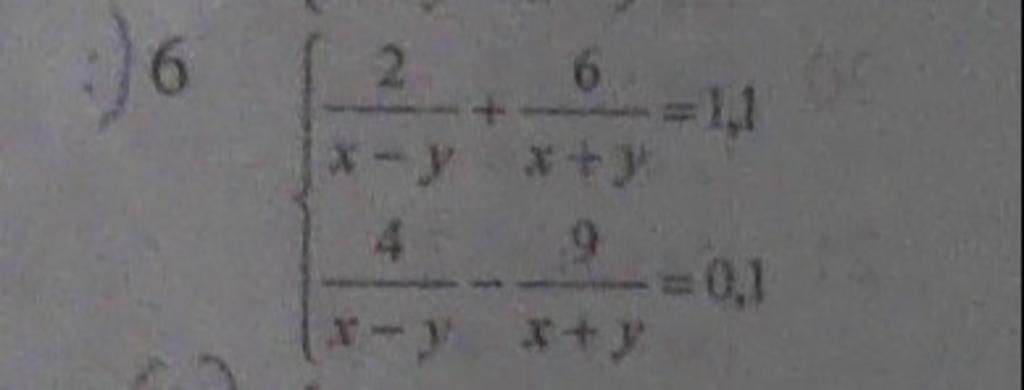 6
2/(x − y) + 6/(x + y) = 1,1
4/(x − y) − 9/(x + y) = 0,1